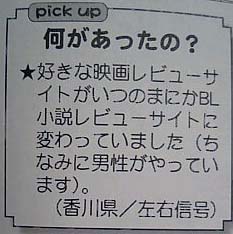 pick up
何があったの？
★好きな映画レビューサ
イトがいつのまにかBL
小説レビューサイトに
変わっていました（ち
なみに男性がやってい
ます）。
（香川県／左右信号）